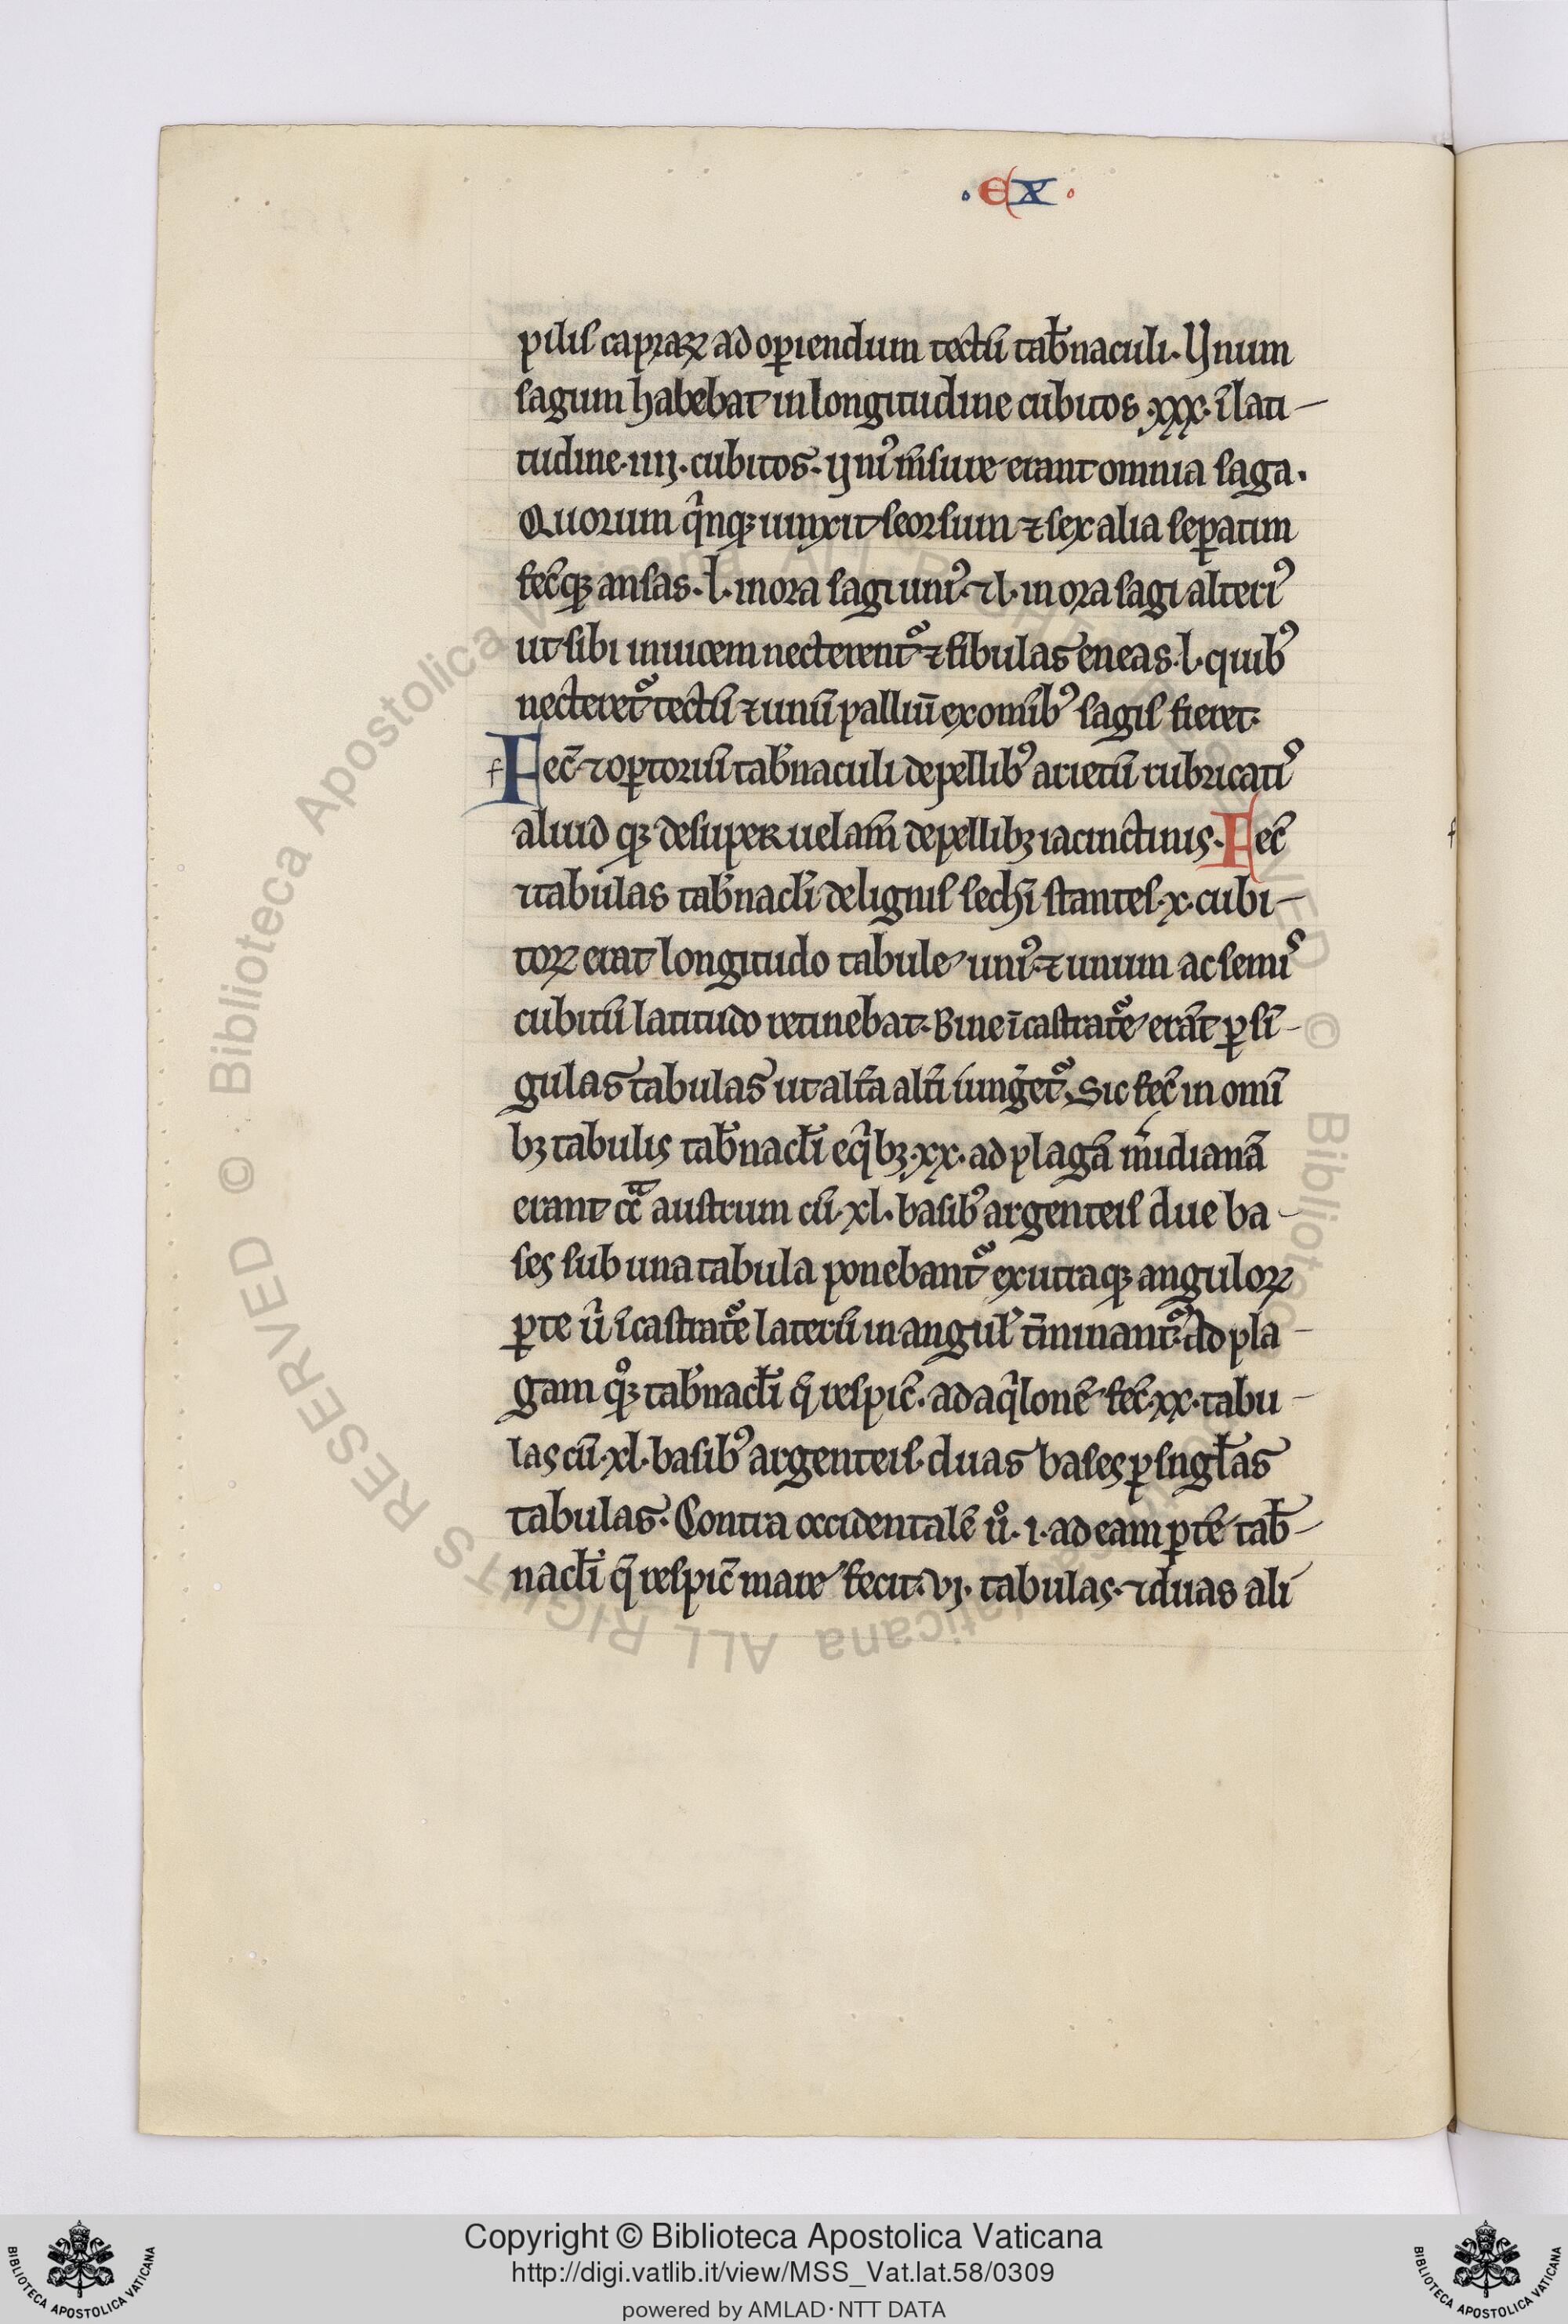 · EX ·
pilis capraꝝ ad oꝑiendum tectū tab̄naculi. Vnum
sagum habebat in longitudine cubitos .xxx. ī lati-
tudine .iiij. cubitos. vniꝰ m̄sure erant omnia saga.
Quorum qͥnqꝫ iunxit seorsum ⁊ sex alia seꝑatim
fec̄qꝫ ansas .l. in ora sagi uniꝰ. ⁊ .l. in ora sagi alteriꝰ
ut sibi inuicem necterent᷑ ⁊ fibulas eneas .l. quibꝰ
necteret᷑ tectū ⁊ unū palliū ex omībꝰ sagis fieret.
f Fec̄ ⁊ oꝑtoriū tab̄naculi de pellibꝰ arietū rubricatis
aliud qꝫ desuper uelam̄ de pellibꝫ iacinctinis. Fec̄
⁊ tabulas tab̄nacl̄i de lignis sechī stantes .x. cubi-
toꝝ erat longitudo tabule uniꝰ. ⁊ unum ac semis
cubitū latitudo retinebat. Bine īcastrat᷑e erāt ꝑ sī-
gulas tabulas ut alt̄a alt̄i iunḡet᷑. Sic fec̄ in omī
bꝫ tabulis tab̄nacl̄i eqͥbꝫ .xx. ad plagā m̄idianā
erant cͣ austrum cū .xl. basibꝰ argenteis due ba-
ses sub una tabula ponebant᷑ ex utraqꝫ anguloꝝ
ꝑte uͥ īcastrat᷑e laterū in angul̄ t̄minant᷑. Ad pla-
gam qͦꝫ tab̄nacl̄i q̄ respic̄. ad aqͥlonē fec̄ .xx. tabu-
las cū .xl. basibꝰ argenteis. duas bases ꝑ sngl̄as
tabulas. Contra occidentalē uͦ. .i. ad eam ꝑtē tab̄-
nacl̄i q̄ respic̄ mare fecit .vj. tabulas. ⁊ duas ali
© Biblioteca Apostolica Vaticana ALL RIGHTS RESERVED © Biblioteca Apostolica Vaticana ALL RIGHTS RESERVED
Copyright © Biblioteca Apostolica Vaticana
http://digi.vatlib.it/view/MSS_Vat.lat.58/0309
powered by AMLAD·NTT DATA
BIBLIOTECA APOSTOLICA VATICANA
BIBLIOTECA APOSTOLICA VATICANA